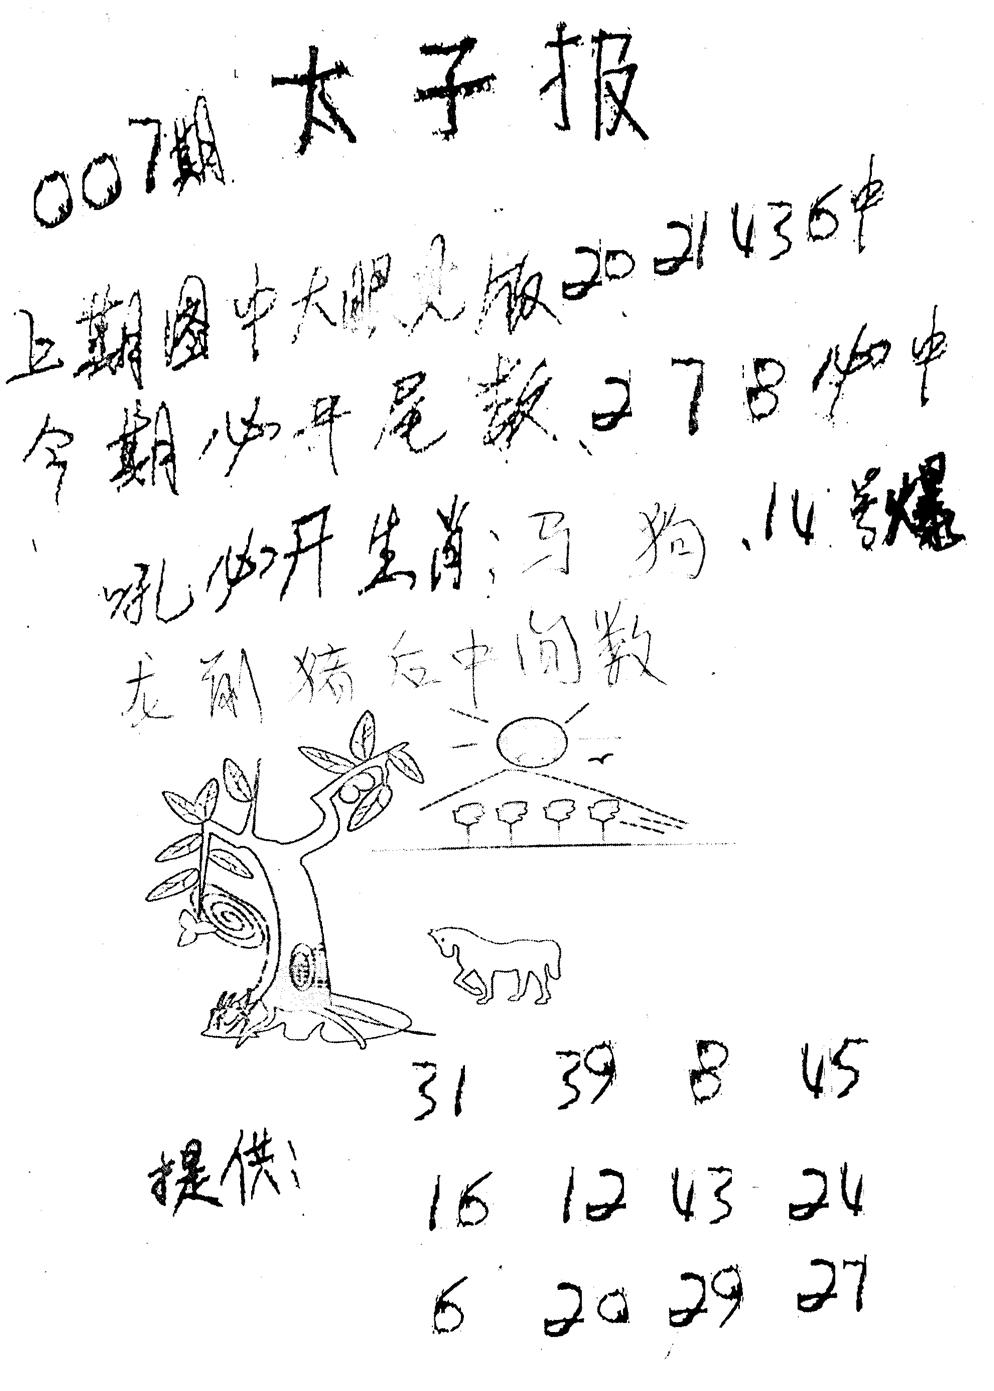 太子报
007期
上期图中大眼见版20 21 43 6中
今期必开尾数、2 7 8 必中
吼必开生肖:马 狗、14号爆
龙前猪后中间数.
31 39 8 45
提供:
16 12 43 24
6 20 29 27